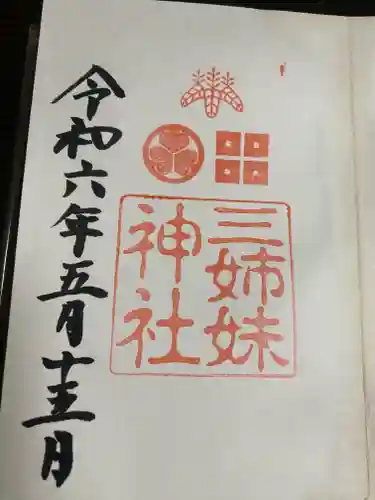 三姉妹
神社
令和六年五月十五月